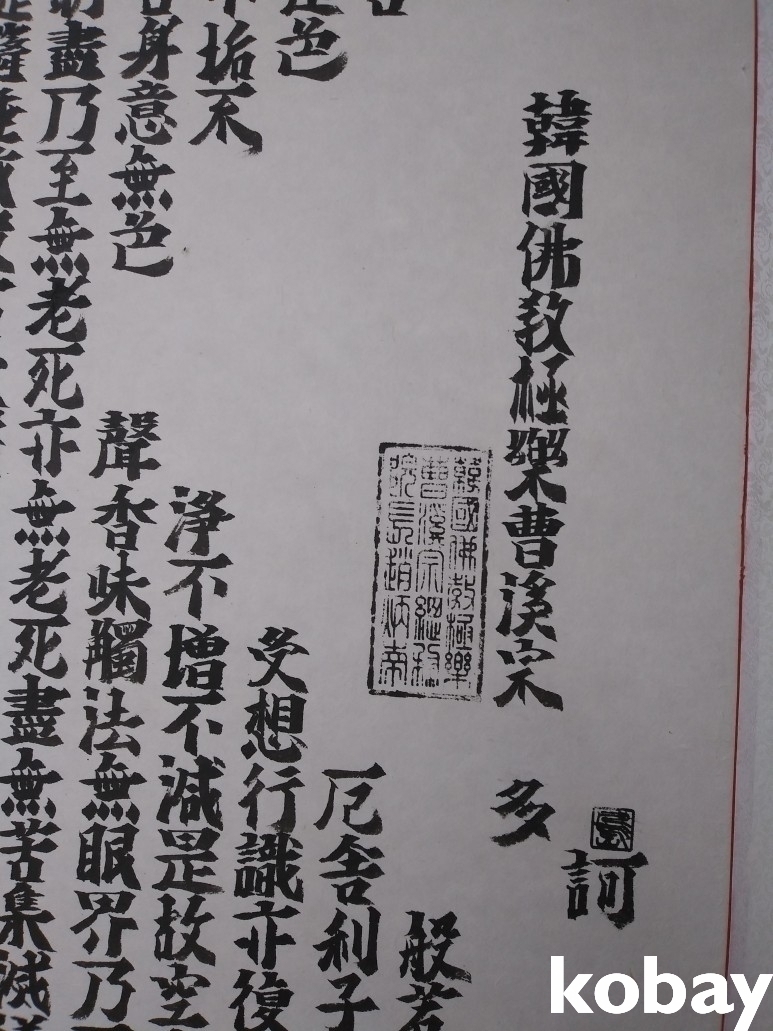 訶
韓國佛敎極樂曹溪宗 多
韓國佛敎極樂
曹溪宗總務
院長趙炳
般若
厄舍利子
色 受想行識亦復
垢不 淨不增不減是故空
身意無色 聲香味觸法無眼界乃
盡乃至無老死亦無老死盡無苦集滅
kobay